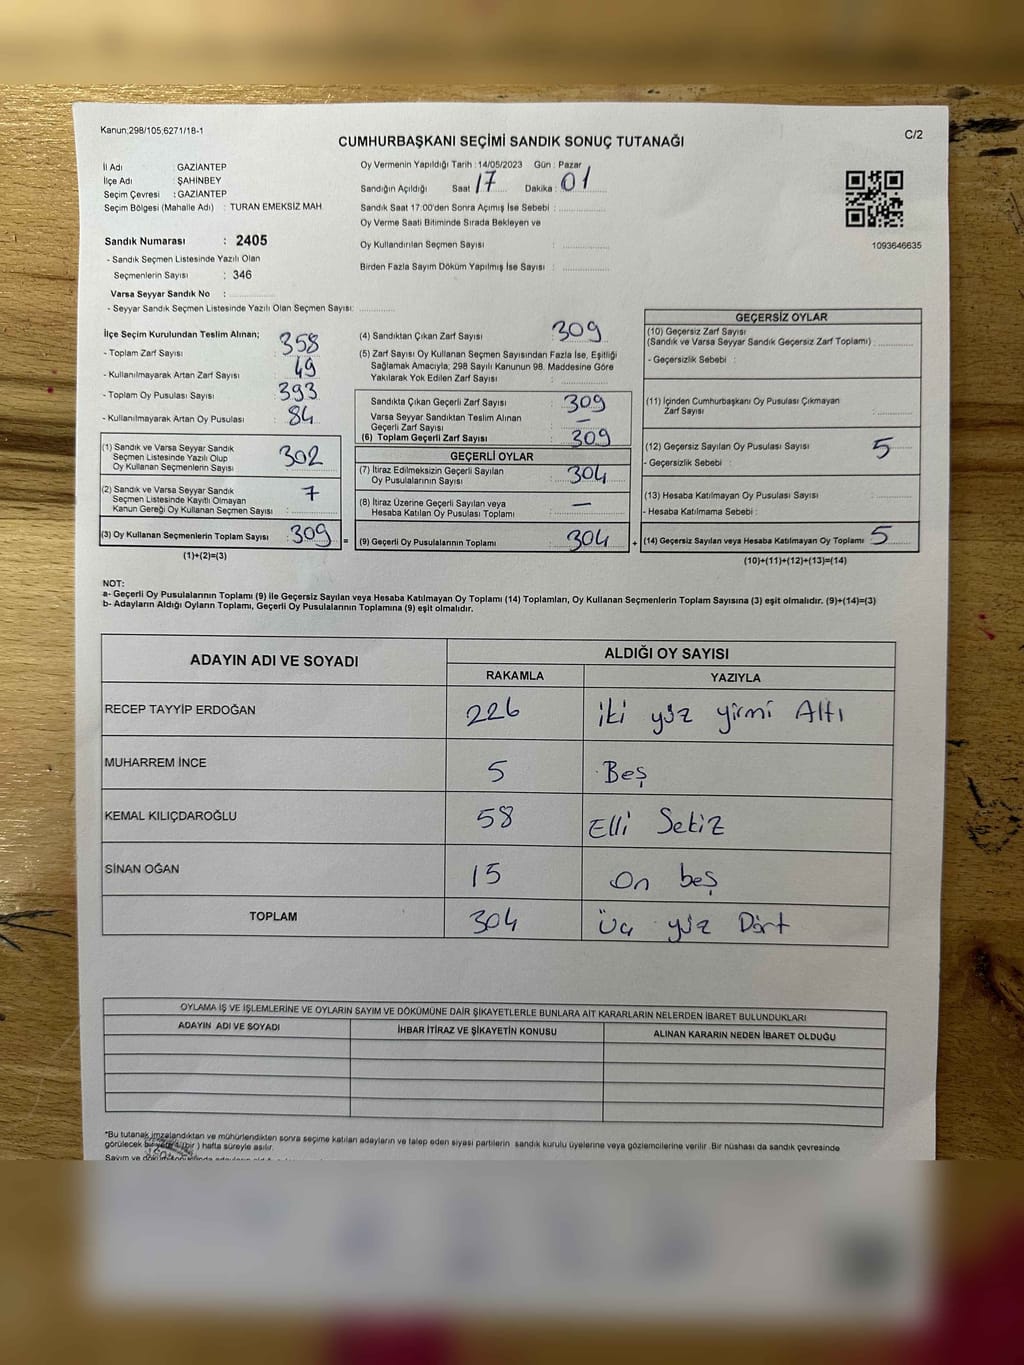 Kanun;298/105;6271/18-1
C/2
CUMHURBAŞKANI SEÇİMİ SANDIK SONUÇ TUTANAĞI
İl Adı : GAZİANTEP
İlçe Adı : ŞAHİNBEY
Seçim Çevresi : GAZİANTEP
Seçim Bölgesi (Mahalle Adı) : TURAN EMEKSİZ MAH.
Sandık Numarası : 2405
- Sandık Seçmen Listesinde Yazılı Olan
Seçmenlerin Sayısı : 346
Varsa Seyyar Sandık No :
- Seyyar Sandık Seçmen Listesinde Yazılı Olan Seçmen Sayısı:
Oy Vermenin Yapıldığı Tarih : 14/05/2023 Gün : Pazar
Sandığın Açıldığı Saat 17 Dakika : 01
Sandık Saat 17:00'den Sonra Açımış İse Sebebi :
Oy Verme Saati Bitiminde Sırada Bekleyen ve
Oy Kullandırılan Seçmen Sayısı :
Birden Fazla Sayım Döküm Yapılmış İse Sayısı :
1093646635
İlçe Seçim Kurulundan Teslim Alınan;
- Toplam Zarf Sayısı : 358
- Kullanılmayarak Artan Zarf Sayısı : 49
- Toplam Oy Pusulası Sayısı : 393
- Kullanılmayarak Artan Oy Pusulası : 84
(1) Sandık ve Varsa Seyyar Sandık
Seçmen Listesinde Yazılı Olup
Oy Kullanan Seçmenlerin Sayısı : 302
(2) Sandık ve Varsa Seyyar Sandık
Seçmen Listesinde Kayıtlı Olmayan
Kanun Gereği Oy Kullanan Seçmen Sayısı : 7
(3) Oy Kullanan Seçmenlerin Toplam Sayısı : 309 =
(1)+(2)=(3)
(4) Sandıktan Çıkan Zarf Sayısı : 309
(5) Zarf Sayısı Oy Kullanan Seçmen Sayısından Fazla İse, Eşitliği
Sağlamak Amacıyla; 298 Sayılı Kanunun 98. Maddesine Göre
Yakılarak Yok Edilen Zarf Sayısı :
Sandıkta Çıkan Geçerli Zarf Sayısı : 309
Varsa Seyyar Sandıktan Teslim Alınan
Geçerli Zarf Sayısı : —
(6) Toplam Geçerli Zarf Sayısı : 309
GEÇERLİ OYLAR
(7) İtiraz Edilmeksizin Geçerli Sayılan
Oy Pusulalarının Sayısı : 304
(8) İtiraz Üzerine Geçerli Sayılan veya
Hesaba Katılan Oy Pusulası Toplamı : —
(9) Geçerli Oy Pusulalarının Toplamı : 304 +
GEÇERSİZ OYLAR
(10) Geçersiz Zarf Sayısı
(Sandık ve Varsa Seyyar Sandık Geçersiz Zarf Toplamı) :
- Geçersizlik Sebebi :
(11) İçinden Cumhurbaşkanı Oy Pusulası Çıkmayan
Zarf Sayısı :
(12) Geçersiz Sayılan Oy Pusulası Sayısı : 5
- Geçersizlik Sebebi :
(13) Hesaba Katılmayan Oy Pusulası Sayısı :
- Hesaba Katılmama Sebebi :
(14) Geçersiz Sayılan veya Hesaba Katılmayan Oy Toplamı : 5
(10)+(11)+(12)+(13)=(14)
NOT:
a- Geçerli Oy Pusulalarının Toplamı (9) ile Geçersiz Sayılan veya Hesaba Katılmayan Oy Toplamı (14) Toplamları, Oy Kullanan Seçmenlerin Toplam Sayısına (3) eşit olmalıdır. (9)+(14)=(3)
b- Adayların Aldığı Oyların Toplamı, Geçerli Oy Pusulalarının Toplamına (9) eşit olmalıdır.
ADAYIN ADI VE SOYADI
ALDIĞI OY SAYISI
RAKAMLA YAZIYLA
RECEP TAYYİP ERDOĞAN 226 iki yüz yirmi Altı
MUHARREM İNCE 5 Beş
KEMAL KILIÇDAROĞLU 58 Elli Sekiz
SİNAN OĞAN 15 On beş
TOPLAM 304 Üç yüz Dört
OYLAMA İŞ VE İŞLEMLERİNE VE OYLARIN SAYIM VE DÖKÜMÜNE DAİR ŞİKAYETLERLE BUNLARA AİT KARARLARIN NELERDEN İBARET BULUNDUKLARI
ADAYIN ADI VE SOYADI İHBAR İTİRAZ VE ŞİKAYETİN KONUSU ALINAN KARARIN NEDEN İBARET OLDUĞU
*Bu tutanak imzalandıktan ve mühürlendikten sonra seçime katılan adayların ve talep eden siyasi partilerin sandık kurulu üyelerine veya gözlemcilerine verilir .Bir nüshası da sandık çevresinde
görülecek bir yere 1 (bir ) hafta süreyle asılır.
Sayım ve